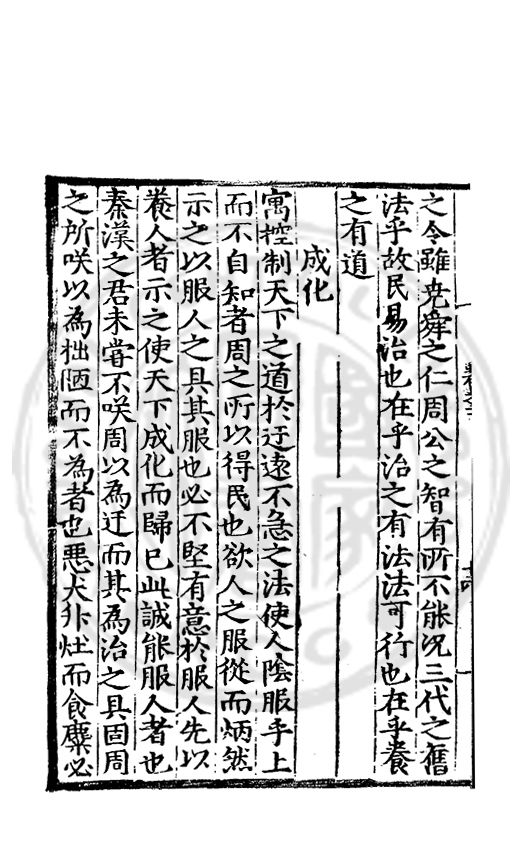 之令雖堯舜之仁周公之智有所不能況三代之舊
法乎故民易治也在乎治之有法法可行也在乎養
之有道
成化
寓控制天下之道於迂遠不急之法使人陰服乎上
而不自知者周之所以得民也欲人之服從而炳然
示之以服人之具其服也必不堅有意於服人先以
養人者示之使天下成化而歸已此誠能服人者也
秦漢之君未嘗不咲周以為迂而其為治之具固周
之所咲以為拙陋而不為者也惡犬升灶而食麋必